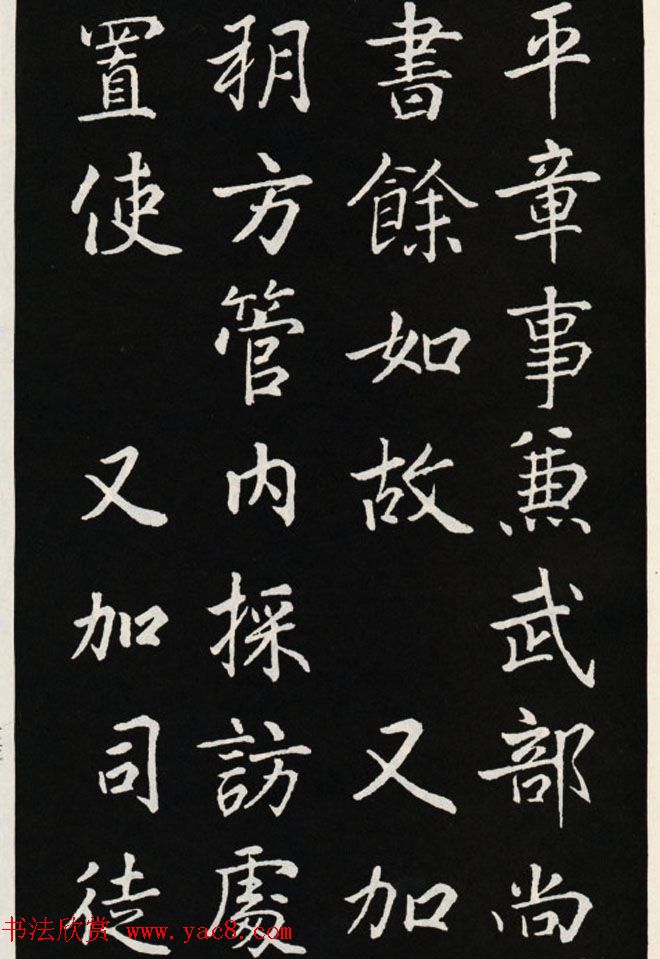 平章事兼武部尚
書餘如故 又加
朔方管内採訪處
置使 又加司徒
书法欣赏 www.yac8.com